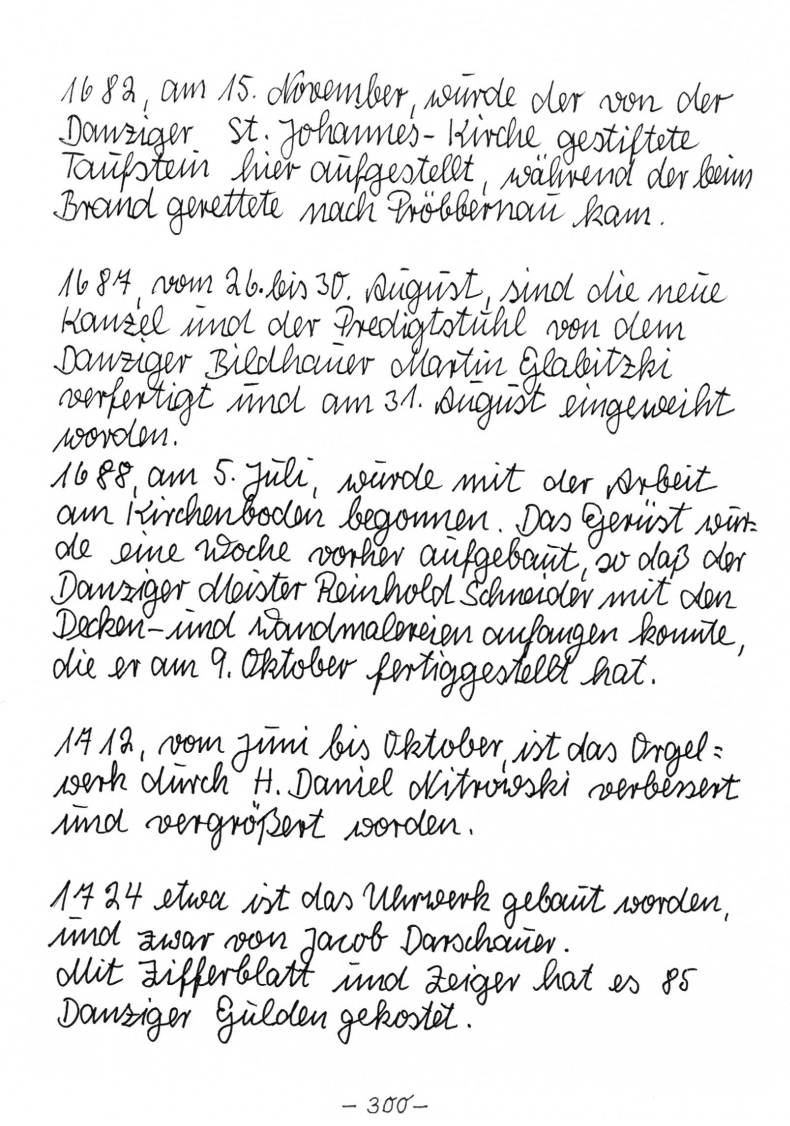 1682, am 15. November, wurde der von der
Danziger St. Johannes-Kirche gestiftete
Taufstein hier aufgestellt, während der beim
Brand gerettete nach Pröbbernau kam.
1687, vom 26. bis 30. August, sind die neue
Kanzel und der Predigtstuhl von dem
Danziger Bildhauer Martin Glabitzki
verfertigt und am 31. August eingeweiht
worden.
1688, am 5. Juli, wurde mit der Arbeit
am Kirchenboden begonnen. Das Gerüst wur=
de eine Woche vorher aufgebaut, so daß der
Danziger Meister Reinhold Schneider mit den
Decken- und Wandmalereien anfangen konnte,
die er am 9. Oktober fertiggestellt hat.
1712, vom Juni bis Oktober, ist das Orgel=
werk durch H. Daniel Nitrowski verbessert
und vergrößert worden.
1724 etwa ist das Uhrwerk gebaut worden,
und zwar von Jacob Darschauer.
Mit Zifferblatt und Zeiger hat es 85
Danziger Gulden gekostet.
- 300 -